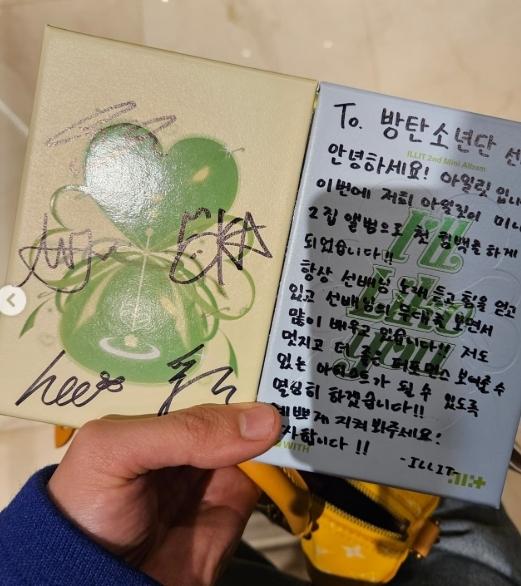 To. 방탄소년단 선
ILLIT 2nd Mini Album
안녕하세요! 아일릿 입니
이번에 저희 아일릿이 미니
2집 앨범으로 첫 컴백을 하게
되었습니다!!
항상 선배님 노래 듣고 힘을 얻고
있고 선배님의 무대를 보면서
많이 배우고 있습니다!! 저도
멋지고 더 좋은 퍼포먼스 보여줄 수
있는 아티스트가 될 수 있도록
열심히 하겠습니다!!
예쁘게 지켜 봐주세요!
사합이다!!
-ILLIT-
I'LL
LIKE
YOU
WITH